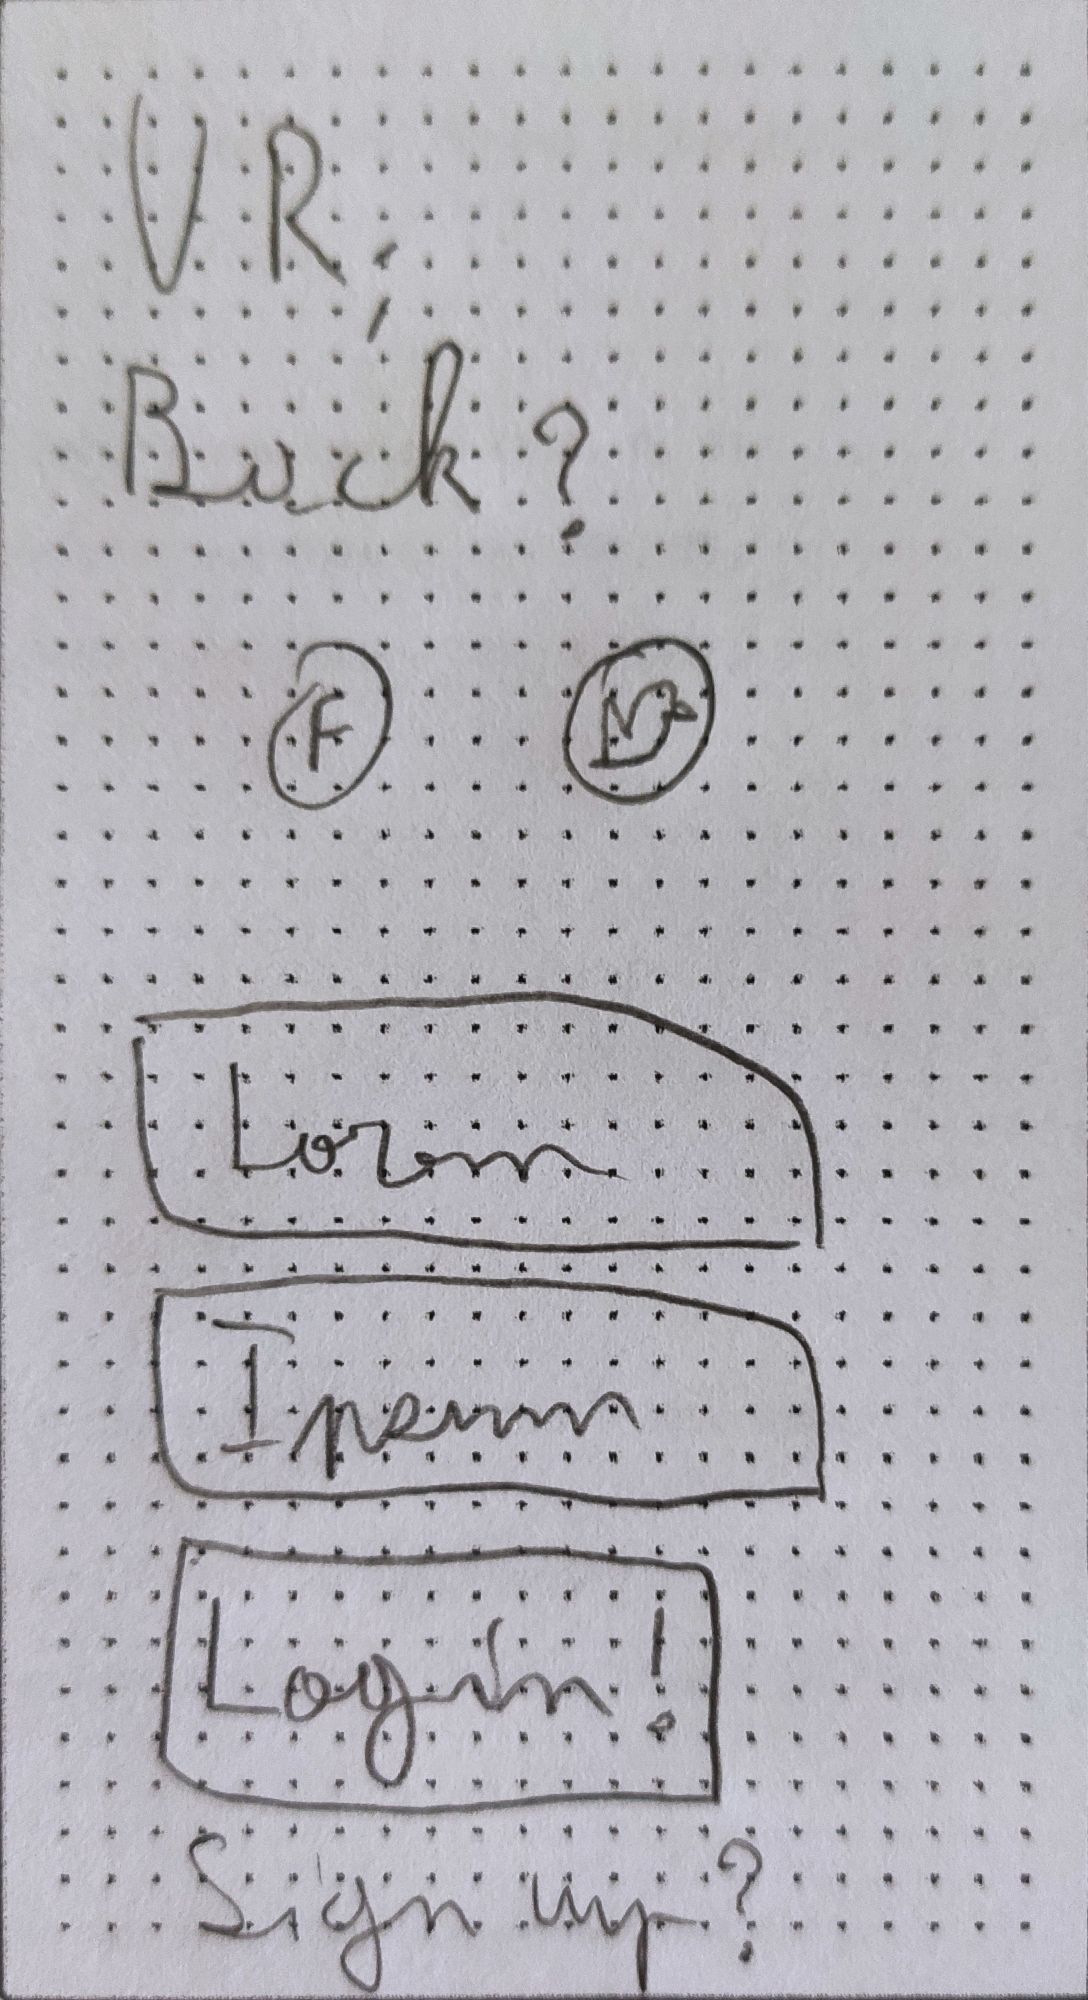 VR,
Buck?
F
Lorem
Ipsum
Login!
Sign up?